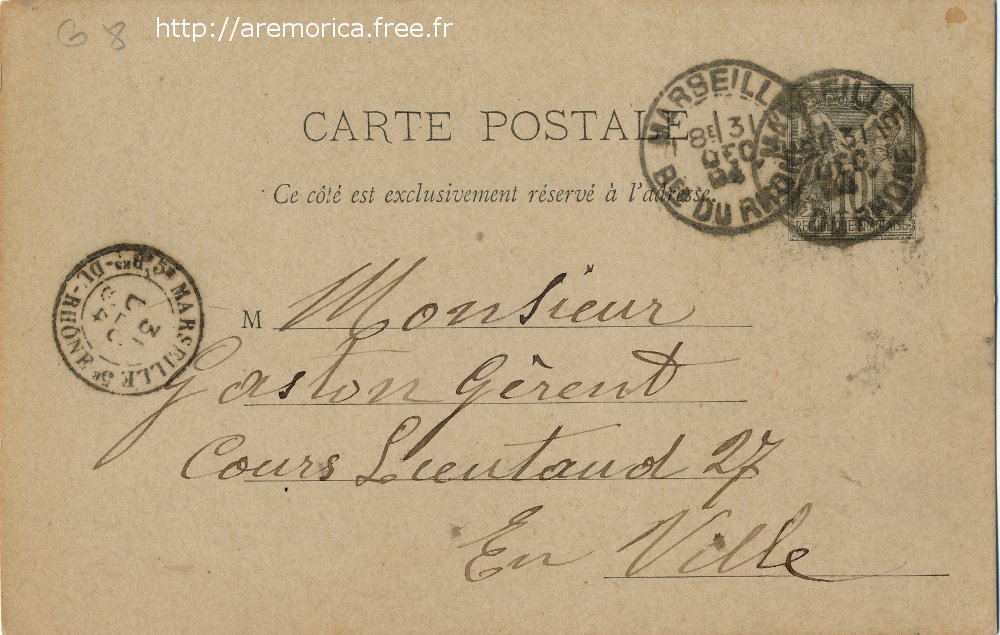 G 8
http://aremorica.free.fr
CARTE POSTALE
Ce côté est exclusivement réservé à l'adresse.
MARSEILLE
8E 31
DEC
94
BES DU RHONE
MARSEILLE
31
DEC
94
DU RHONE
10
MARSEILLE 5E
BES-DU-RHÔNE
31
94
M Monsieur
Gaston Gérent
Cours Lieutaud 27
En Ville